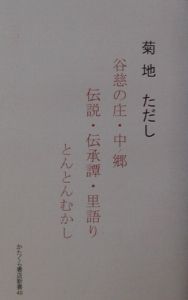 菊地 ただし
谷慈の庄・中郷
伝説・伝承譚・里語り
とんとんむかし
かたくら書店新書49